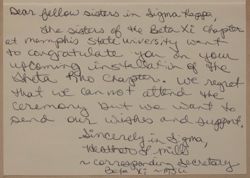 Dear fellow sisters in Sigma Kappa,
The sisters of the Beta Xi Chapter
at Memphis State University want
to congratulate you on your
upcoming installation of the
Theta Rho Chapter. We regret
that we cannot attend the
ceremony but we want to
send our wishes and support.
Sincerely in Sigma,
Heather L. Mills
~ corresponding Secretary
Beta Xi - MSU